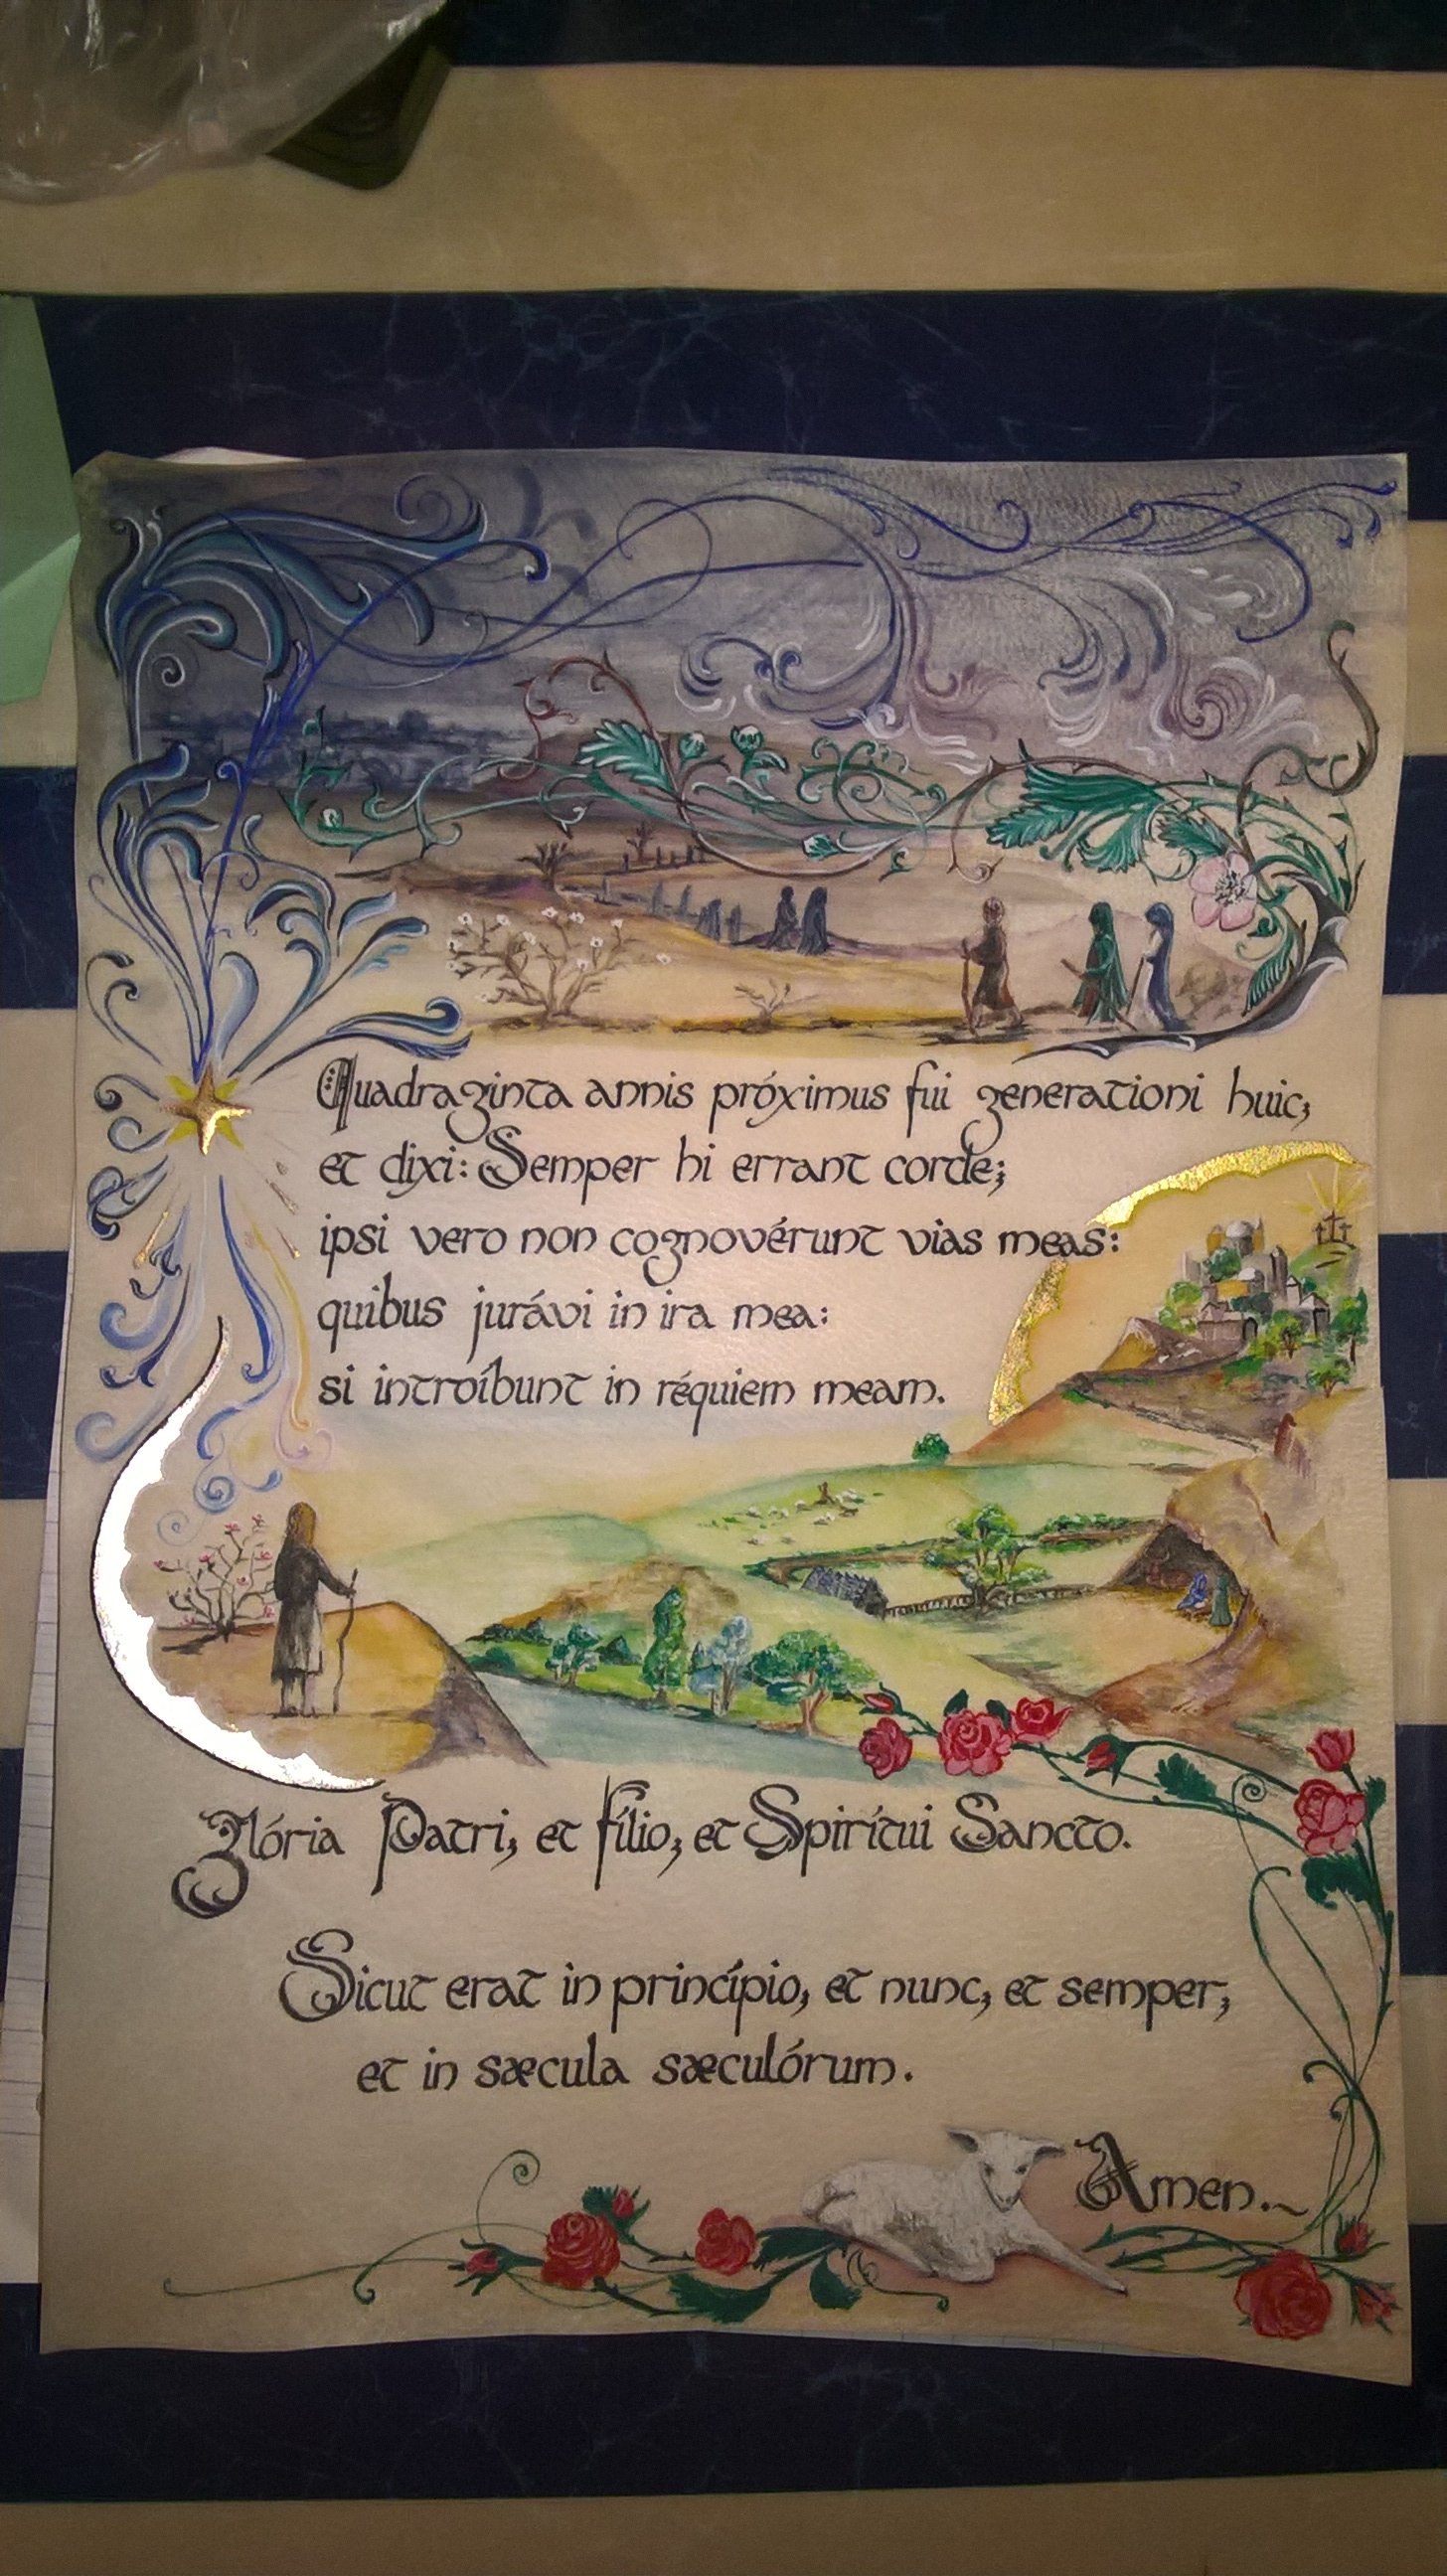 Quadraginta annis próximus fui generationi huic,
et dixi: Semper hi errant corde;
ipsi vero non cognovérunt vias meas:
quibus jurávi in ira mea:
si introíbunt in réquiem meam.
Glória Patri, et Fílio, et Spirítui Sancto.
Sicut erat in princípio, et nunc, et semper,
et in sæcula sæculórum.
Amen.